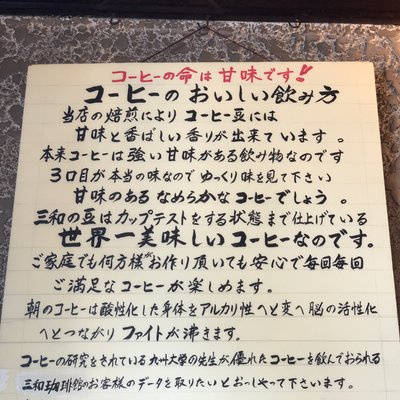 コーヒーの命は甘味です!!
コーヒーのおいしい飲み方
当店の焙煎によりコーヒー豆には
甘味と香ばしい香りが出来ています。
本来コーヒーは強い甘味がある飲み物なのです
3口目が本当の味なのでゆっくり味を見て下さい
甘味のあるなめらかなコーヒーでしょう。
三和の豆はカップテストをする状態まで仕上げている
世界一美味しいコーヒーなのです。
ご家庭でも何方様がお作り頂いても安心で毎回毎回
ご満足なコーヒーが楽しめます。
朝のコーヒーは酸性化した身体をアルカリ性へと変へ脳の活性化
へとつながりファイトが沸きます。
コーヒーの研究をされている九州大学の先生が優れたコーヒーを飲んでおられる
三和珈琲館のお客様のデータを取りたいとおっしゃって下さいます。